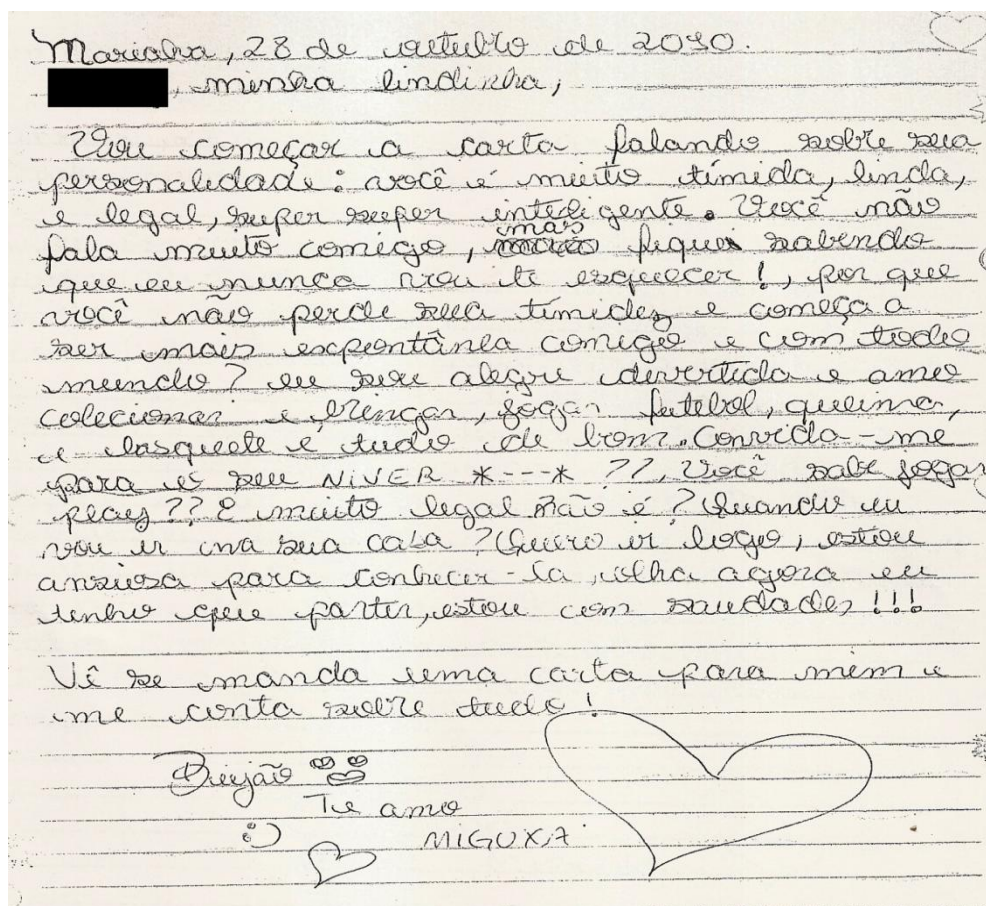 Marialva, 28 de outubro de 2010.
, minha lindinha,
Vou começar a carta falando sobre sua
personalidade: você é muito tímida, linda,
e legal, super super inteligente. Você não
mas
fala muito comigo, fique sabendo
que eu nunca vou te esquecer!, por que
você não perde sua timidez e começa a
ser mais expontânea comigo e com todo
mundo? eu sou alegre divertida e amo
colecionar e brincar, jogar futebol, queima,
e basquete é tudo de bom. Convida-me
para o seu NIVER *---* ??, Você sabe jogar
play?? É muito legal não é? Quando eu
vou ir na sua casa? Quero ir logo, estou
ansiosa para conhecer-la, olha agora eu
tenho que partir, estou com saudades!!!
Vê se manda uma carta para mim e
me conta sobre tudo!
Beijão
Te amo
:) MIGUXA